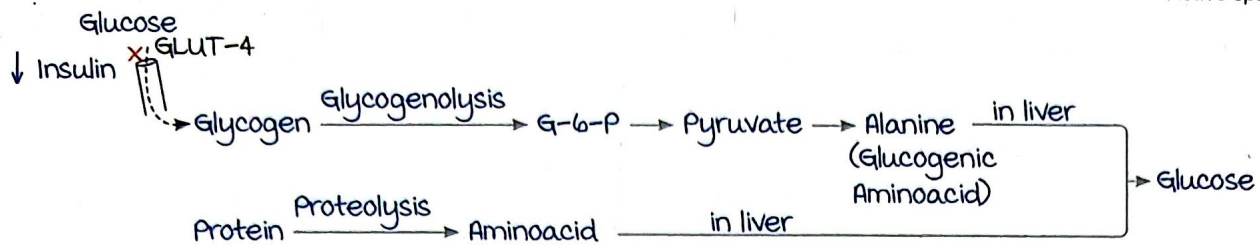 Glucose
GLUT-4
↓ Insulin
Glycogen Glycogenolysis G-6-P Pyruvate Alanine in liver
(Glucogenic
Aminoacid)
Glucose
Protein Proteolysis Aminoacid in liver